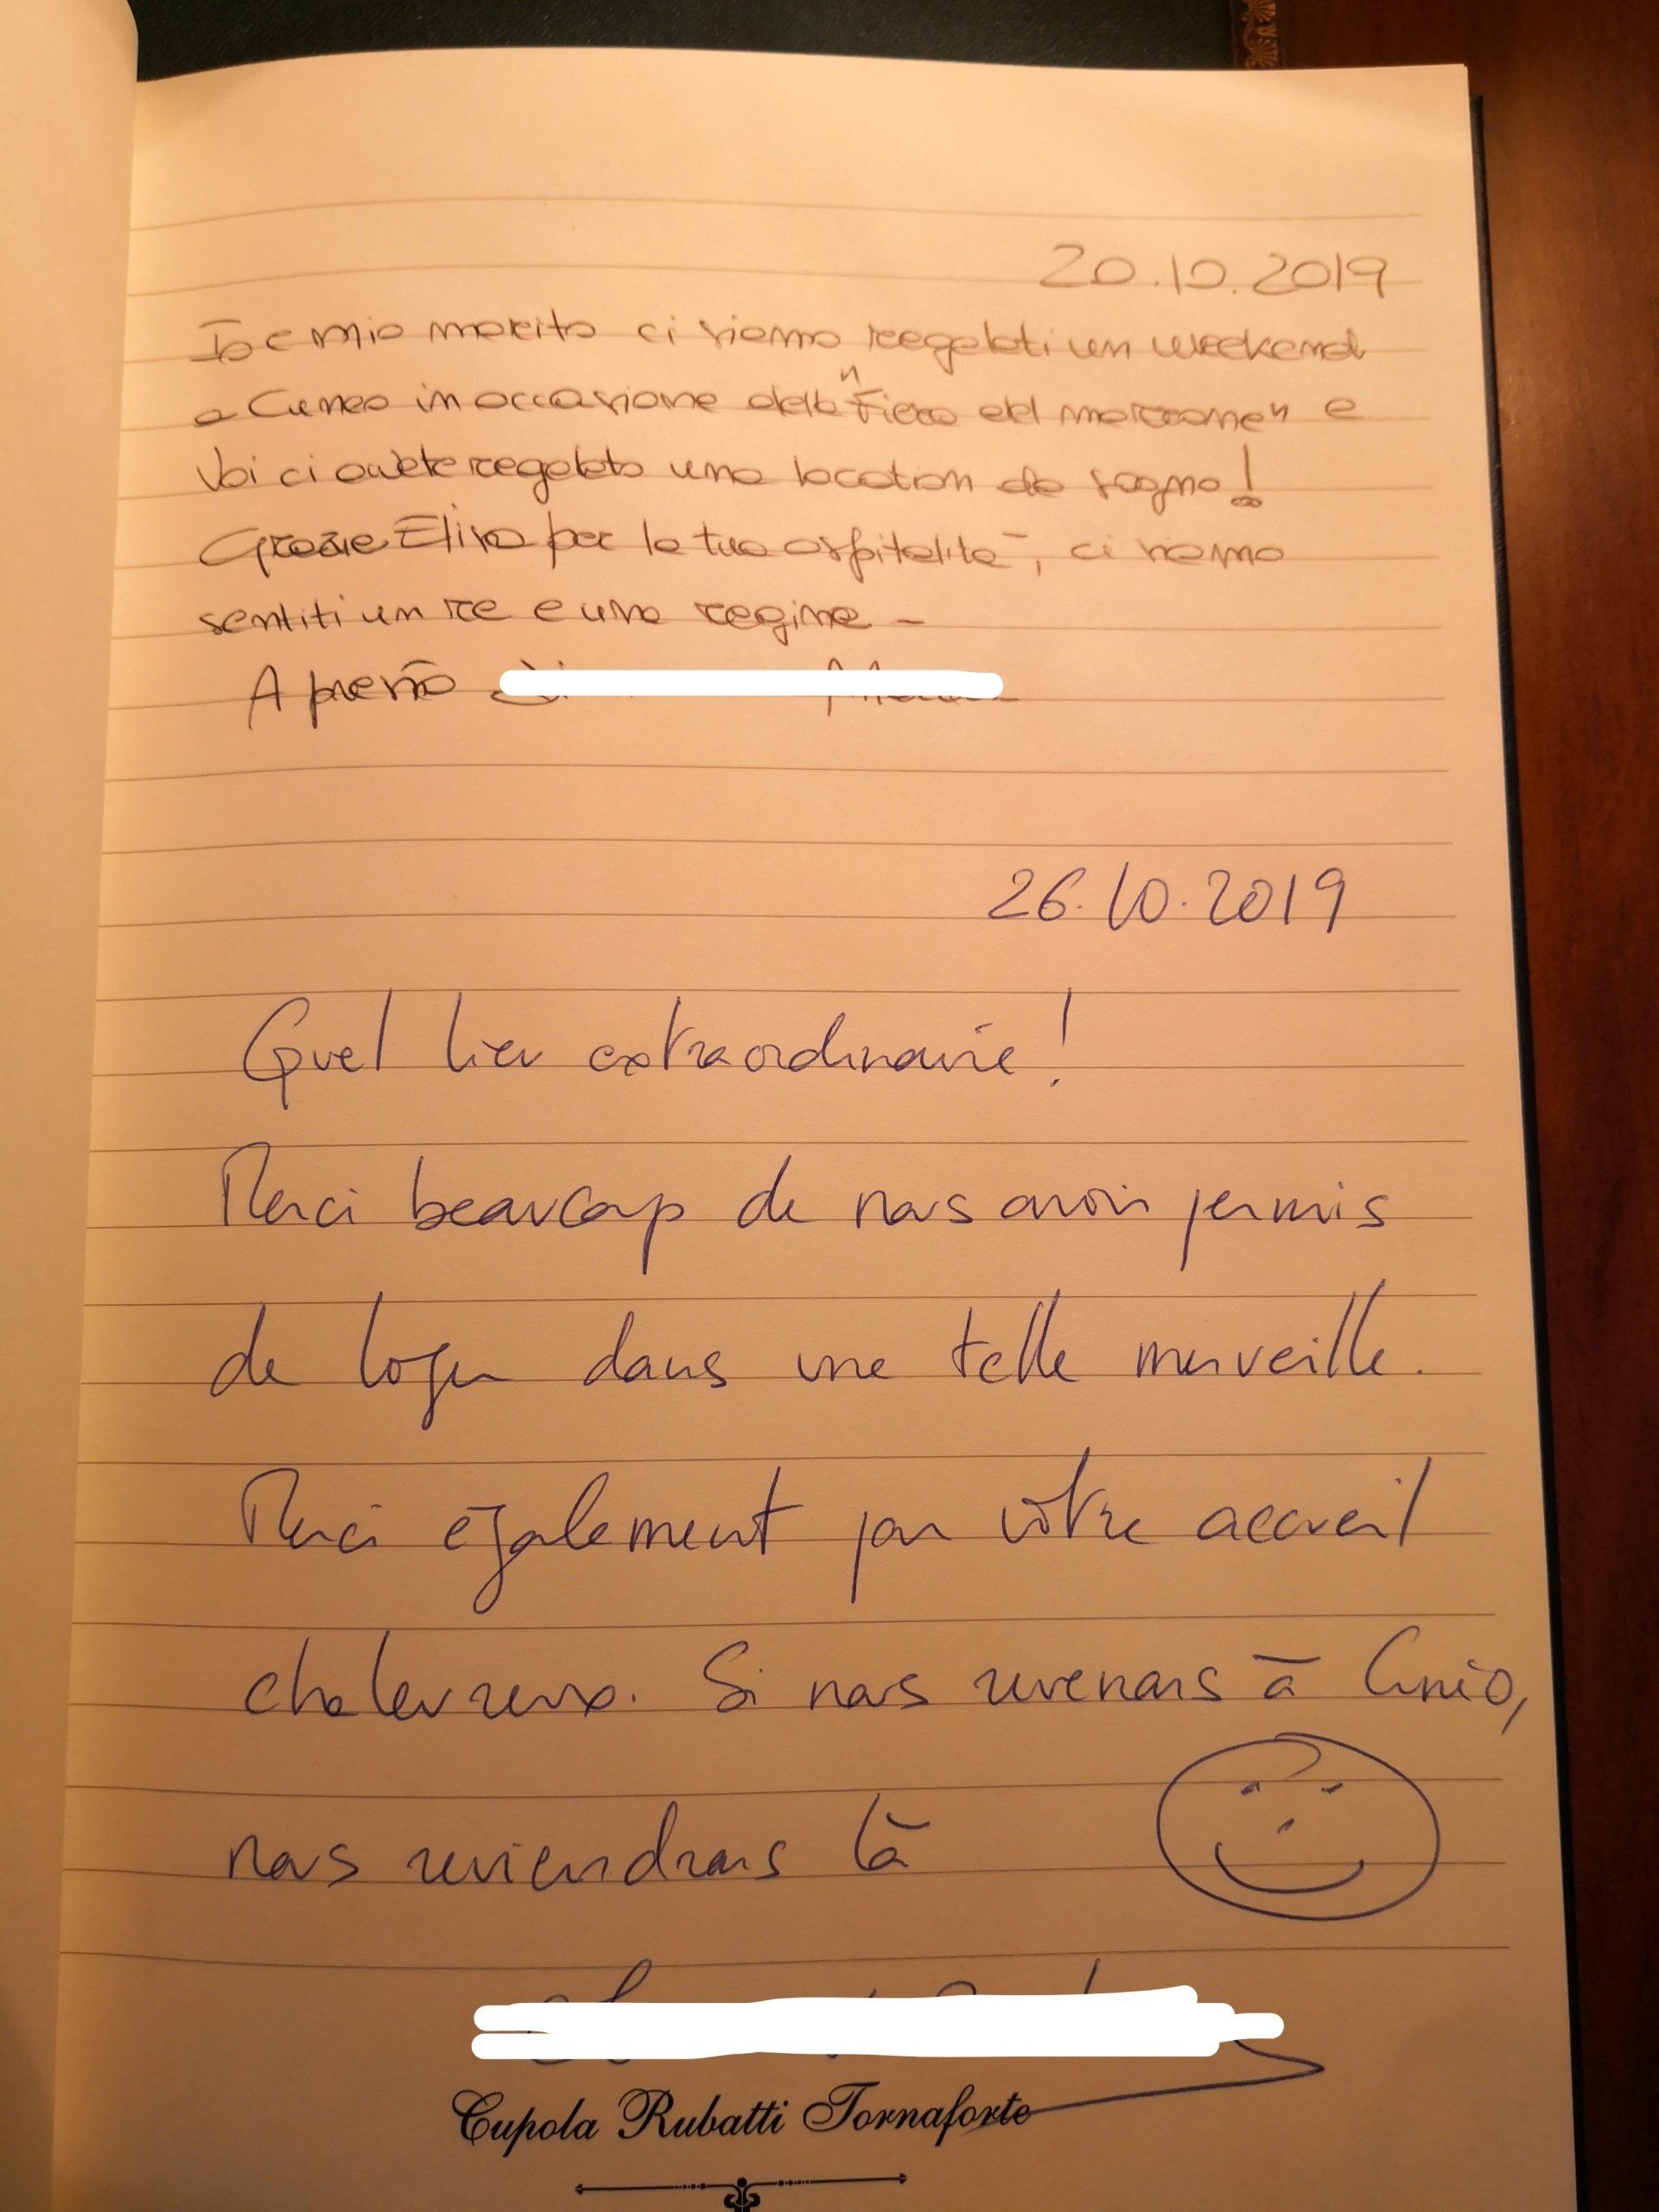 20.10.2019
Io e mio marito ci siamo regalati un weekend
a Cuneo in occasione della "Fiera del marrone" e
Voi ci avete regalato una location da sogno!
Grazie Elisa per la tua ospitalità, ci siamo
sentiti un re e una regina -
A presto
26.10.2019
Quel lieu extraordinaire!
Merci beaucoup de nous avoir permis
de loger dans une telle merveille.
Merci également pour vôtre accueil
chaleureux. Si nous revenons à Cunéo,
nous reviendrons là
Cupola Rubatti Tornaforte